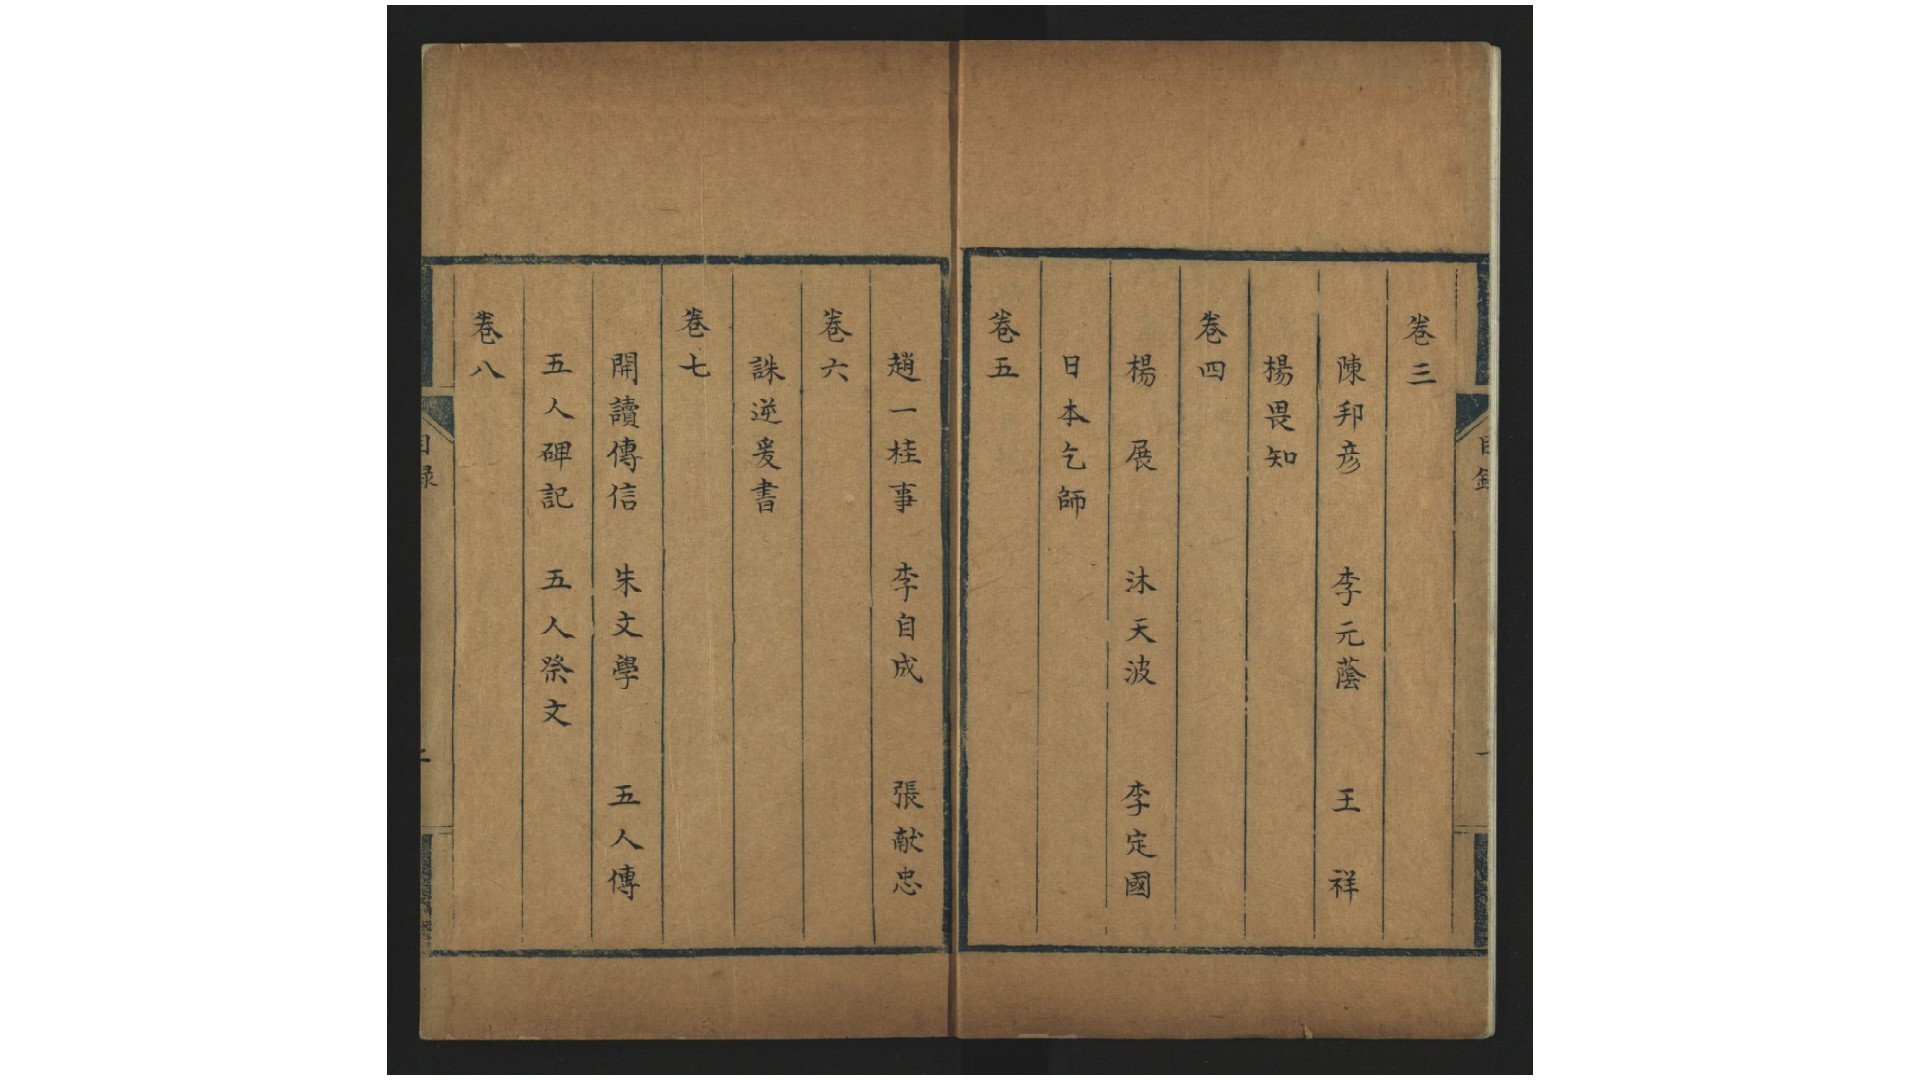 目錄
一
卷三
陳邦彦 李元蔭 王祥
楊畏知
卷四
楊展 沐天波 李定國
日本乞師
卷五
趙一桂事 李自成 張献忠
卷六
誅逆爰書
卷七
開讀傳信 朱文學 五人傳
五人碑記 五人祭文
卷八
目録
二